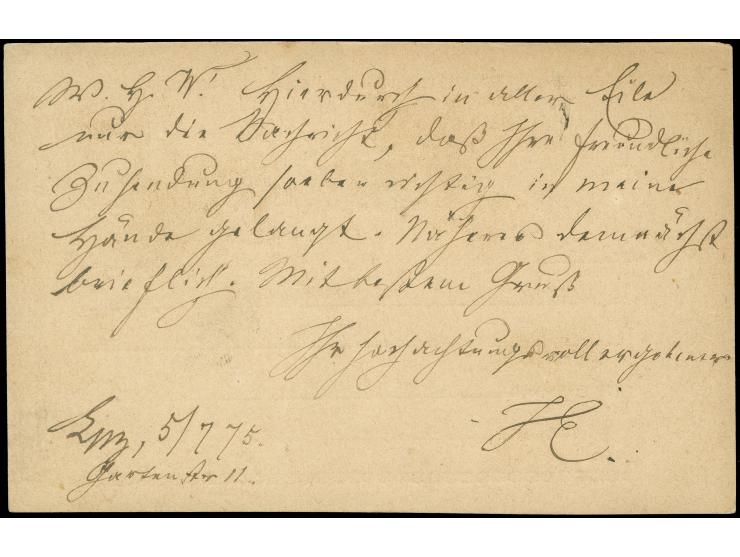 W. H. N! Hierdurch in aller Eile
nur die Nachricht, daß Ihre freundliche
Zusendung soeben richtig in meine
Hände gelangt. Näheres demnächst
brieflich. Mit bestem Gruß
Ihr hochachtungsvoll ergebener
Lpz, 5/7 75.
Gartenstr 11.